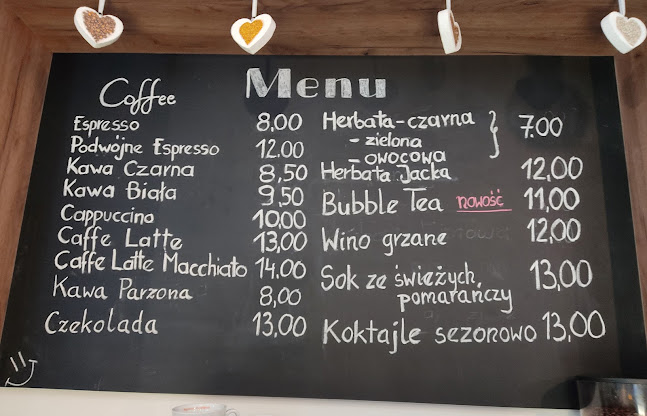 Menu
Coffee
Espresso 8,00
Podwójne Espresso 12.00
Kawa Czarna 8,50
Kawa Biała 9,50
Cappuccino 10,00
Caffe Latte 13,00
Caffe Latte Macchiato 14.00
Kawa Parzona 8,00
Czekolada 13,00
Herbata-czarna
- zielona 7.00
- owocowa
Herbata Jacka 12,00
Bubble Tea nowość 11,00
Wino grzane 12,00
Sok ze świeżych 13,00
pomarańczy
Koktajle sezonowo 13,00